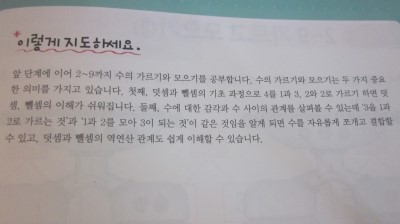 이렇게 지도하세요.
앞 단계에 이어 2~9까지 수의 가르기와 모으기를 공부합니다. 수의 가르기와 모으기는 두 가지 중요
한 의미를 가지고 있습니다. 첫째, 덧셈과 뺄셈의 기초 과정으로 4를 1과 3, 2와 2로 가르기 하면 덧
셈, 뺄셈의 이해가 쉬워집니다. 둘째, 수에 대한 감각과 수 사이의 관계를 살펴볼 수 있는데 '3을 1과
2로 가르는 것'과 '1과 2를 모아 3이 되는 것'이 같은 것임을 알게 되면 수를 자유롭게 쪼개고 결합할
수 있고, 덧셈과 뺄셈의 역연산 관계도 쉽게 이해할 수 있습니다.